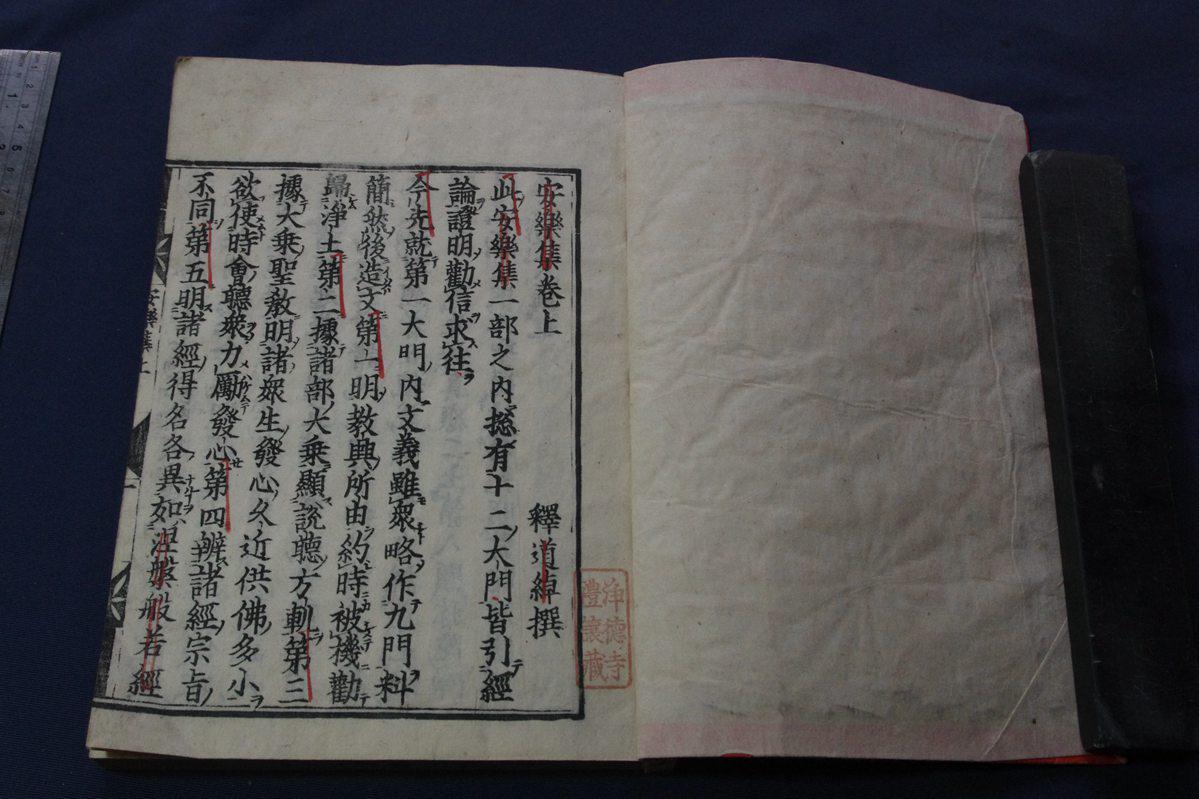 安樂集卷上
釋道綽撰
此安樂集一部之内揔有十二大門皆引經
論證明勸信求往
今先就第一大門内文義雖衆略作九門料
簡然後造文第一明教興所由約時被機勸
歸淨土第二據諸部大乘顯說聽方軌第三
據大乘聖教明諸衆生發心久近供佛多小
欲使時會聽衆力勵發心第四辨諸經宗旨
不同第五明諸經得名各異如涅槃般若經
安樂集上
浄德寺
禮讓藏